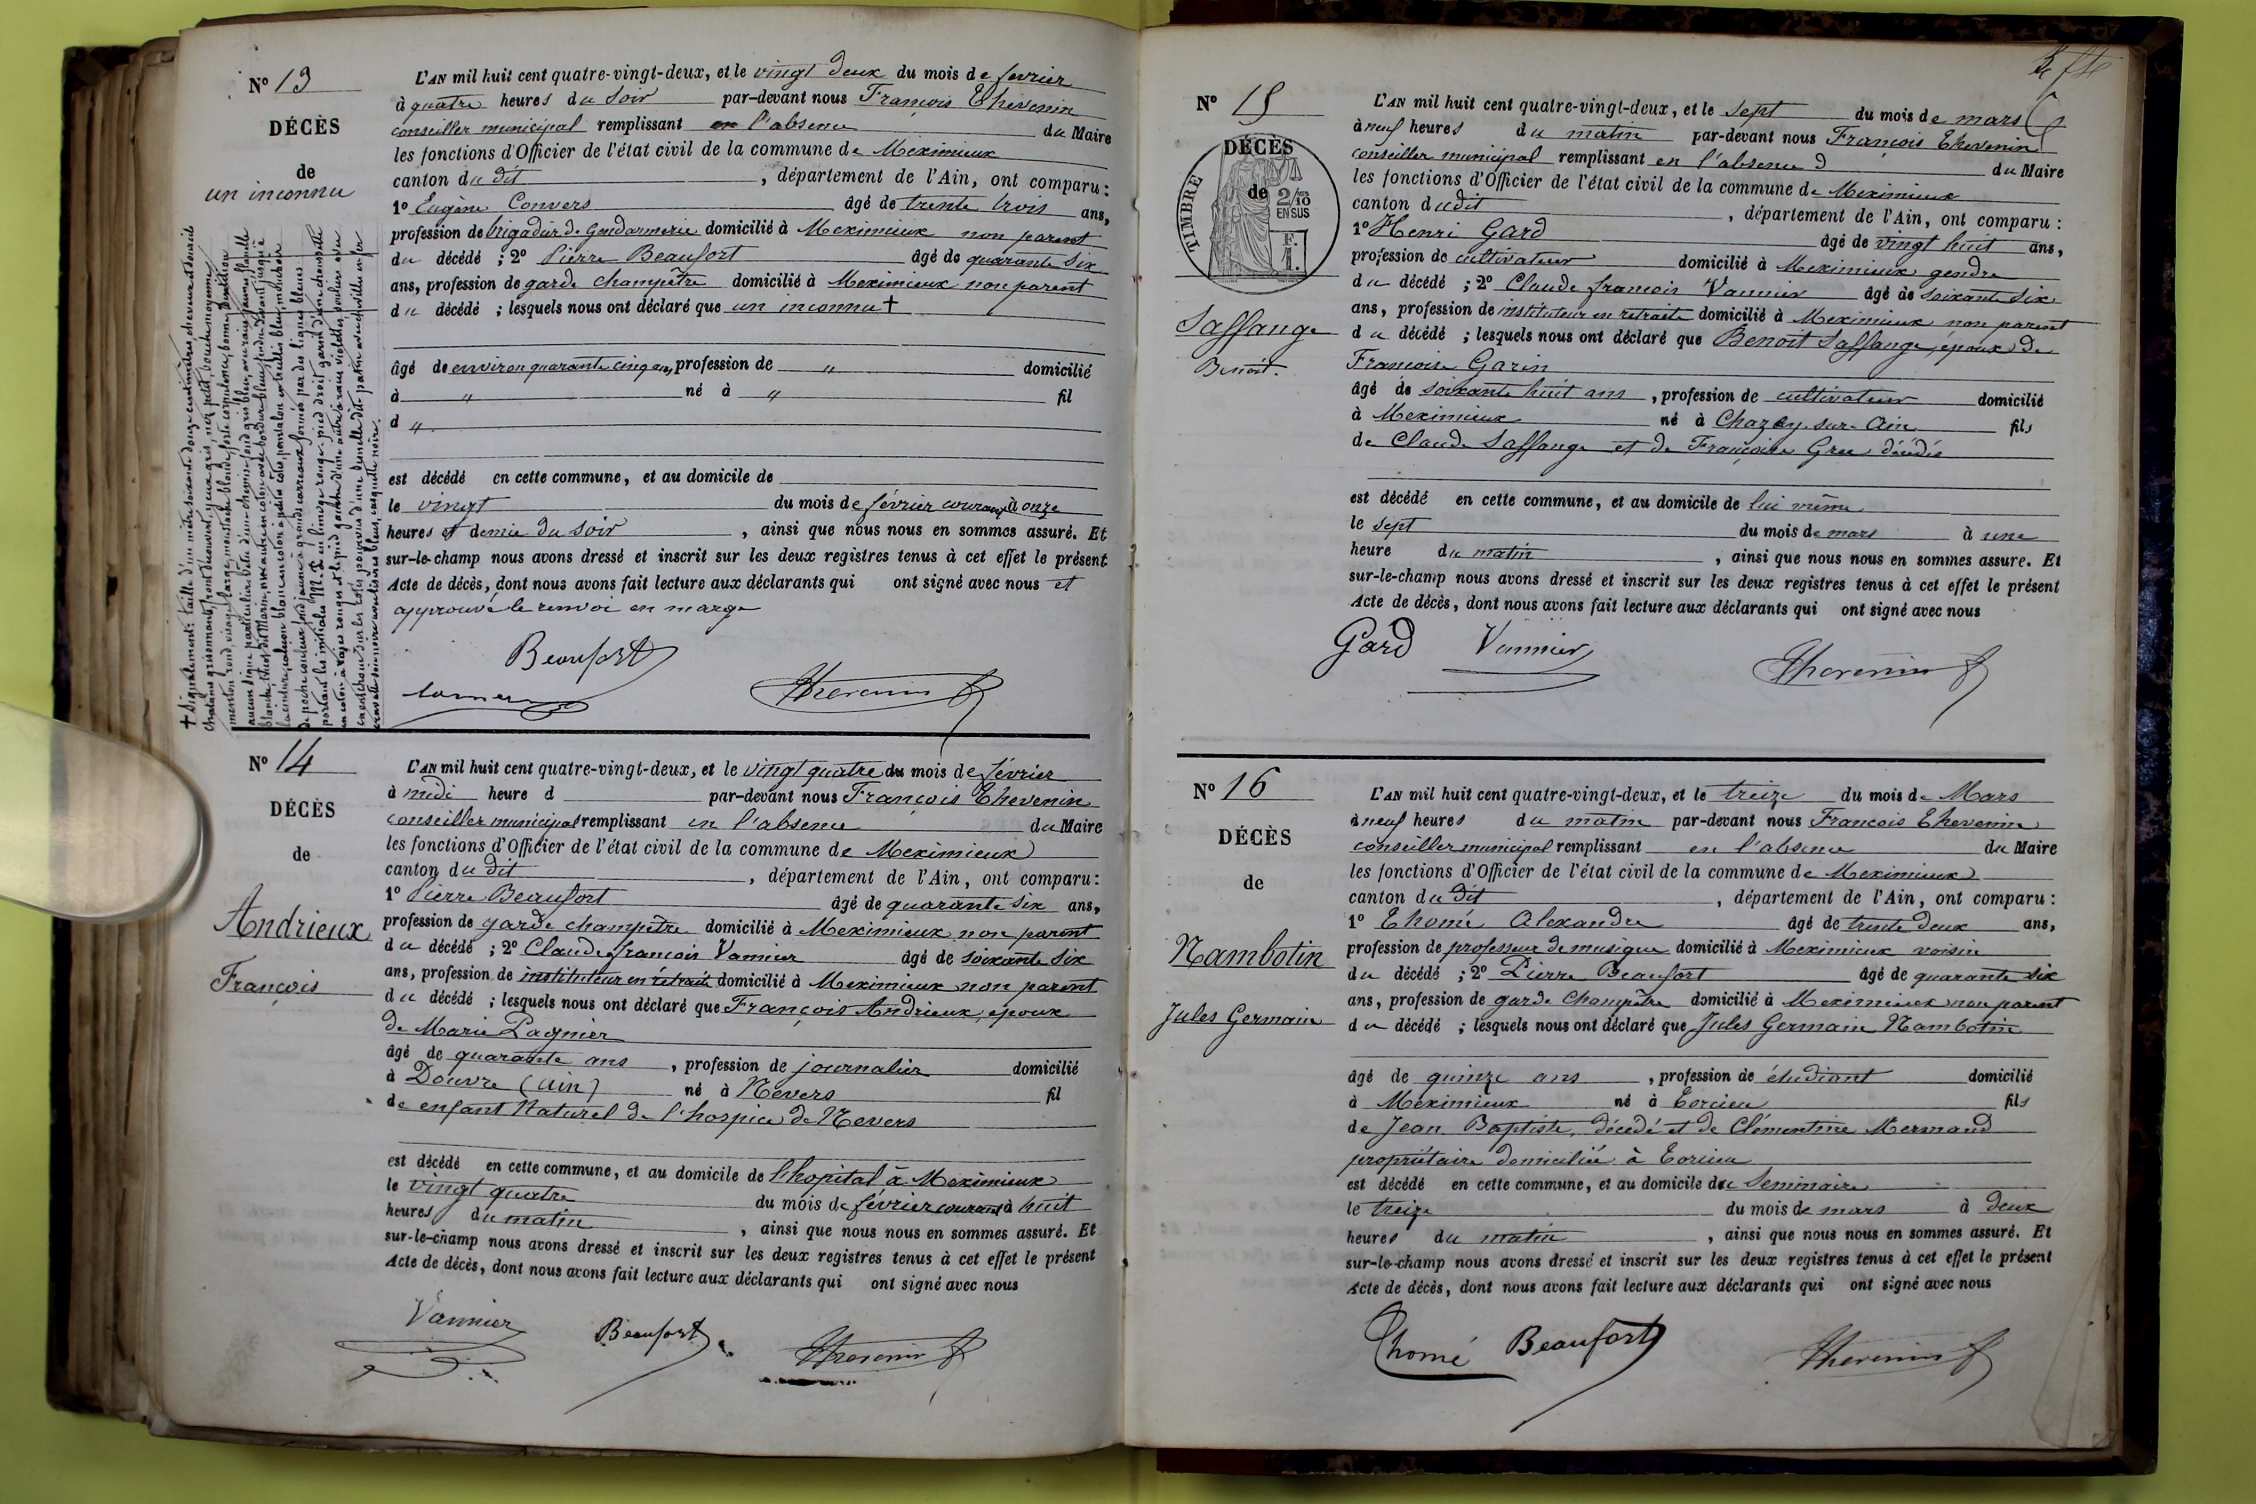 Nº 13
DÉCÈS
de
un inconnu
L'AN mil huit cent quatre-vingt-deux, et le vingt deux du mois de fevrier
à quatre heures du soir par-devant nous François Thevenin
conseiller municipal remplissant en l'absence du Maire
les fonctions d'Officier de l'état civil de la commune de Meximieux
canton du dit, département de l'Ain, ont comparu :
1º Eugène Convers âgé de trente trois ans,
profession de brigadier de Gendarmerie domicilié à Meximieux non parent
du décédé ; 2º Pierre Beaufort âgé de quarante six
ans, profession de garde champêtre domicilié à Meximieux non parent
du décédé ; lesquels nous ont déclaré que un inconnu +
âgé de environ quarante cinq ans, profession de " domicilié
à " né à " fil
d "
est décédé en cette commune, et au domicile de
le vingt du mois de février courant à onze
heures et demie du soir, ainsi que nous nous en sommes assuré. Et
sur-le-champ nous avons dressé et inscrit sur les deux registres tenus à cet effet le présent
Acte de décès, dont nous avons fait lecture aux déclarants qui ont signé avec nous et
approuvé le renvoi en marge
Beaufort
Thevenin
+ Signalement : taille d'un mètre soixante douze centimètres, cheveux et sourcils
chatains grisonnants, front découvert, yeux gris, nez petit, bouche moyenne
menton rond, visage large, moustache blonde, forte corpulence, bonne
aucun signe particulier. Vêtu d'une chemise fond gris bleu,
blanche, tricot dit Marin,
la ceinture, caleçon blanc en coton à petites côtes, pantalon en treillis bleu, mouchoir
de poche couleur fond jaune à grands carreaux formés par des lignes bleues
portant les initiales M. J. en linge rouge, pied droit garni d'une chaussette
en coton à raies rouges et le pied gauche d'une autre à raies violettes, souliers
caoutchouc sur les côtés
cravate soie noire casquette noire.
Nº 14
DÉCÈS
de
Andrieux
François
L'AN mil huit cent quatre-vingt-deux, et le vingt quatre du mois de février
à midi heure d par-devant nous François Thevenin
conseiller municipal remplissant en l'absence du Maire
les fonctions d'Officier de l'état civil de la commune de Meximieux
canton du dit, département de l'Ain, ont comparu :
1º Pierre Beaufort âgé de quarante six ans,
profession de garde champêtre domicilié à Meximieux non parent
du décédé ; 2º Claude françois Vannier âgé de soixante six
ans, profession de instituteur en retraite domicilié à Meximieux non parent
du décédé ; lesquels nous ont déclaré que François Andrieux, époux
de Marie Pagnier
âgé de quarante ans, profession de journalier domicilié
à Douvre (Ain) né à Nevers fil
de enfant Naturel de l'hospice de Nevers
est décédé en cette commune, et au domicile de l'hopital à Meximieux
le vingt quatre du mois de février courant à huit
heures du matin, ainsi que nous nous en sommes assuré. Et
sur-le-champ nous avons dressé et inscrit sur les deux registres tenus à cet effet le présent
Acte de décès, dont nous avons fait lecture aux déclarants qui ont signé avec nous
Vannier Beaufort Thevenin
Nº 15
DÉCÈS
de
TIMBRE
2/10 EN SUS
F. 1.
Saffange
Benoît.
L'AN mil huit cent quatre-vingt-deux, et le sept du mois de mars
à neuf heures du matin par-devant nous François Thevenin
conseiller municipal remplissant en l'absence d du Maire
les fonctions d'Officier de l'état civil de la commune de Meximieux
canton dudit, département de l'Ain, ont comparu :
1º Henri Gard âgé de vingt huit ans,
profession de cultivateur domicilié à Meximieux gendre
du décédé ; 2º Claude françois Vannier âgé de soixante six
ans, profession de instituteur en retraite domicilié à Meximieux non parent
du décédé ; lesquels nous ont déclaré que Benoît Saffange, époux de
Françoise Garin
âgé de soixante huit ans, profession de cultivateur domicilié
à Meximieux né à Chazey-sur-Ain fils
de Claude Saffange et de Françoise Gree décédés
est décédé en cette commune, et au domicile de lui même
le sept du mois de mars à une
heure du matin, ainsi que nous nous en sommes assuré. Et
sur-le-champ nous avons dressé et inscrit sur les deux registres tenus à cet effet le présent
Acte de décès, dont nous avons fait lecture aux déclarants qui ont signé avec nous
Gard Vannier Thevenin
Nº 16
DÉCÈS
de
Nambotin
Jules Germain
L'AN mil huit cent quatre-vingt-deux, et le treize du mois de Mars
à neuf heures du matin par-devant nous François Thevenin
conseiller municipal remplissant en l'absence du Maire
les fonctions d'Officier de l'état civil de la commune de Meximieux
canton du dit, département de l'Ain, ont comparu :
1º Thomé Alexandre âgé de trente deux ans,
profession de professeur de musique domicilié à Meximieux voisin
du décédé ; 2º Pierre Beaufort âgé de quarante six
ans, profession de garde champêtre domicilié à Meximieux non parent
du décédé ; lesquels nous ont déclaré que Jules Germain Nambotin
âgé de quinze ans, profession de étudiant domicilié
à Meximieux né à Torcieu fils
de Jean Baptiste, décédé et de Clémentine Mermand
propriétaire domiciliée à Torcieu
est décédé en cette commune, et au domicile du Seminaire
le treize du mois de mars à deux
heures du matin, ainsi que nous nous en sommes assuré. Et
sur-le-champ nous avons dressé et inscrit sur les deux registres tenus à cet effet le présent
Acte de décès, dont nous avons fait lecture aux déclarants qui ont signé avec nous
Thomé Beaufort Thevenin